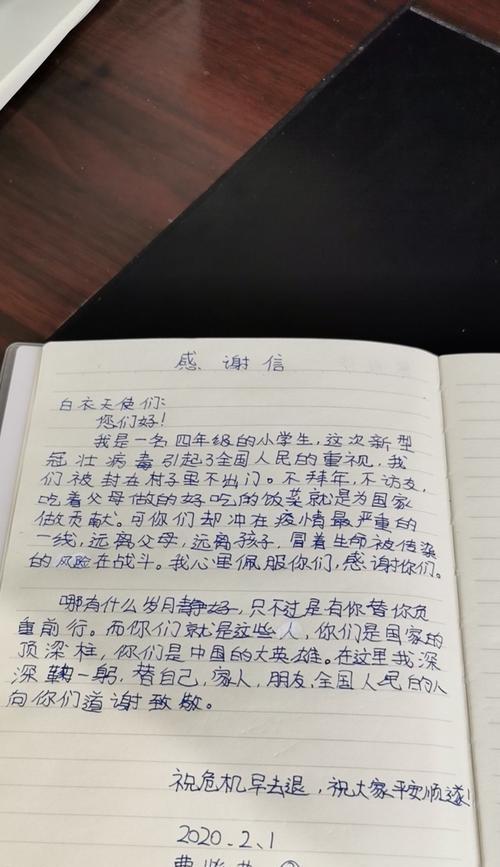 感谢信
白衣天使们:
您们好!
我是一名四年级的小学生,这次新型
冠壮病毒引起了全国人民的重视,我
们被封在村子里不出门。不拜年,不访友,
吃着父母做的好吃的饭菜就是为国家
做贡献。可你们却冲在疫情最严重的
一线,远离父母,远离孩子,冒着生命被传染
的风险在战斗。我心里佩服你们,感谢你们。
哪有什么岁月静好,只不过是有你替你负
重前行。而你们就是这些人,你们是国家的
顶梁柱,你们是中国的大英雄。在这里我深
深鞠一躬,替自己,家人,朋友,全国人民的人
向你们道谢致敬。
祝危机早去退,祝大家平安顺遂!
2020.2.1